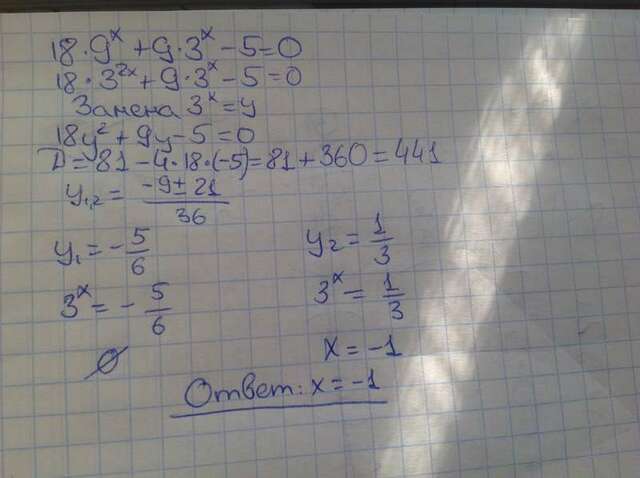 18·9^x + 9·3^x − 5 = 0
18·3^2x + 9·3^x − 5 = 0
Замена 3^x = y
18y² + 9y − 5 = 0
D = 81 − 4·18·(−5) = 81 + 360 = 441
y₁,₂ = (−9 ± 21)/36
y₁ = −5/6    y₂ = 1/3
3^x = −5/6    3^x = 1/3
∅    x = −1
Ответ: x = −1